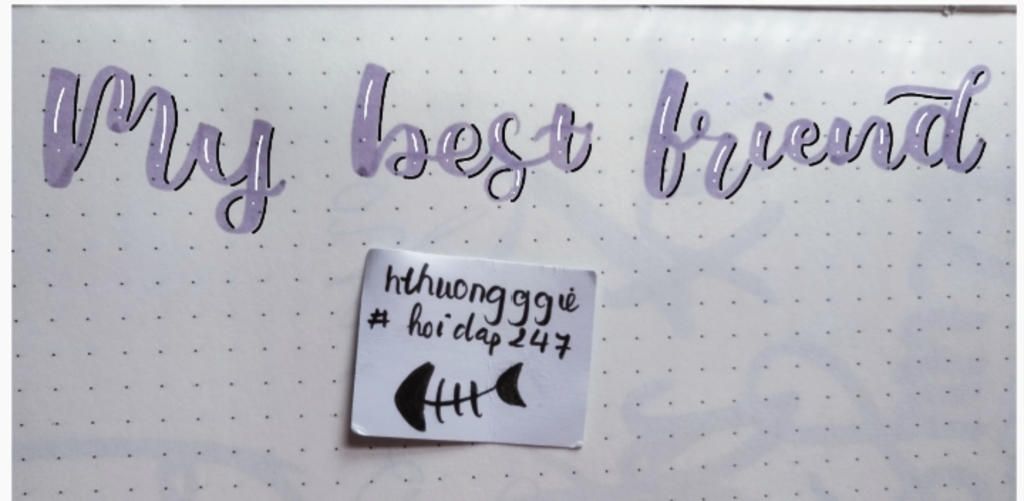 My best friend
hthuongggiè
# hoidap247